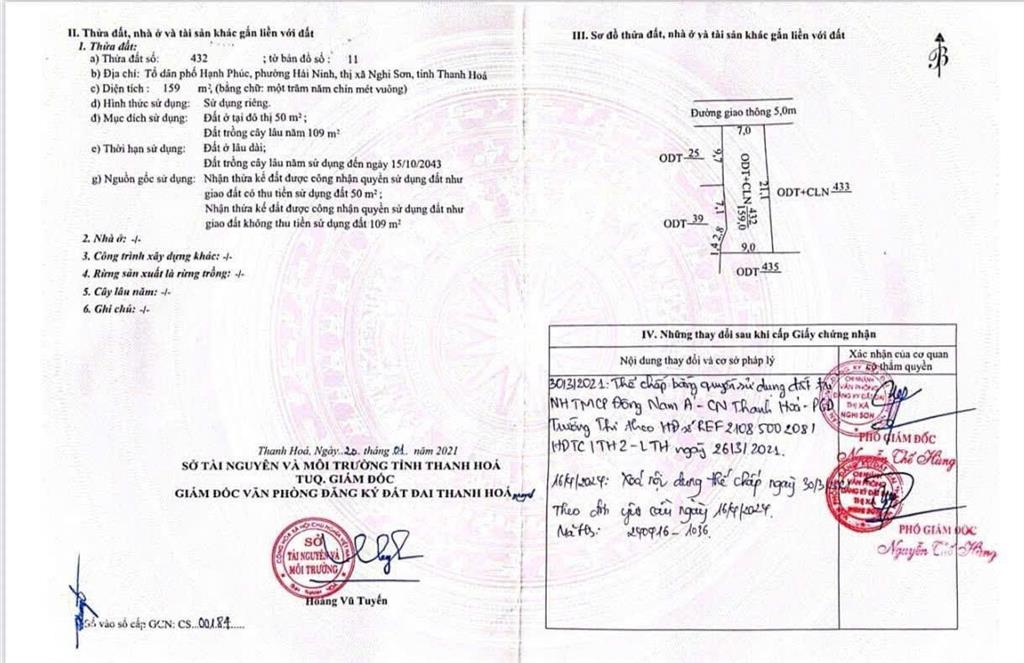 II. Thửa đất, nhà ở và tài sản khác gắn liền với đất
1. Thửa đất:
a) Thửa đất số: 432 ; tờ bản đồ số : 11
b) Địa chỉ: Tổ dân phố Hạnh Phúc, phường Hải Ninh, thị xã Nghi Sơn, tỉnh Thanh Hoá
c) Diện tích : 159 m², (bằng chữ: một trăm năm chín mét vuông)
d) Hình thức sử dụng: Sử dụng riêng.
đ) Mục đích sử dụng: Đất ở tại đô thị 50 m² ;
Đất trồng cây lâu năm 109 m²
e) Thời hạn sử dụng: Đất ở lâu dài;
Đất trồng cây lâu năm sử dụng đến ngày 15/10/2043
g) Nguồn gốc sử dụng: Nhận thừa kế đất được công nhận quyền sử dụng đất như
giao đất có thu tiền sử dụng đất 50 m² ;
Nhận thừa kế đất được công nhận quyền sử dụng đất như
giao đất không thu tiền sử dụng đất 109 m²
2. Nhà ở: -/-
3. Công trình xây dựng khác: -/-
4. Rừng sản xuất là rừng trồng: -/-
5. Cây lâu năm: -/-
6. Ghi chú: -/-
Thanh Hoá, Ngày 20 tháng 01 năm 2021
SỞ TÀI NGUYÊN VÀ MÔI TRƯỜNG TỈNH THANH HOÁ
TUQ. GIÁM ĐỐC
GIÁM ĐỐC VĂN PHÒNG ĐĂNG KÝ ĐẤT ĐAI THANH HOÁ
SỞ
TÀI NGUYÊN VÀ
MÔI TRƯỜNG
Hoàng Vũ Tuyến
Số vào sổ cấp GCN: CS...00184.....
III. Sơ đồ thửa đất, nhà ở và tài sản khác gắn liền với đất
B
Đường giao thông 5,0m
7,0
ODT 25
9,7
ODT+CLN 432
159,0
21,1
ODT+CLN 433
7,1
ODT 39
2,8
1,4
9,0
ODT 435
IV. Những thay đổi sau khi cấp Giấy chứng nhận
Nội dung thay đổi và cơ sở pháp lý
Xác nhận của cơ quan
có thẩm quyền
30/3/2021: Thế chấp bằng quyền sử dụng đất tại
NHTMCP Đông Nam Á - CN Thanh Hoá - PGD
Trường Thi theo HĐ số REF 2108500208/
HĐTC/TH2-LTH ngày 26/3/2021.
CHI NHÁNH
VĂN PHÒNG
ĐĂNG KÝ ĐẤT ĐAI
THỊ XÃ
NGHI SƠN
PHÓ GIÁM ĐỐC
Nguyễn Thế Hùng
16/4/2024: Xoá nội dung thế chấp ngày 30/3/
Theo đơn yêu cầu ngày 16/4/2024.
Mã HS: 240416 - 1036.
PHÓ GIÁM ĐỐC
Nguyễn Thế Hùng